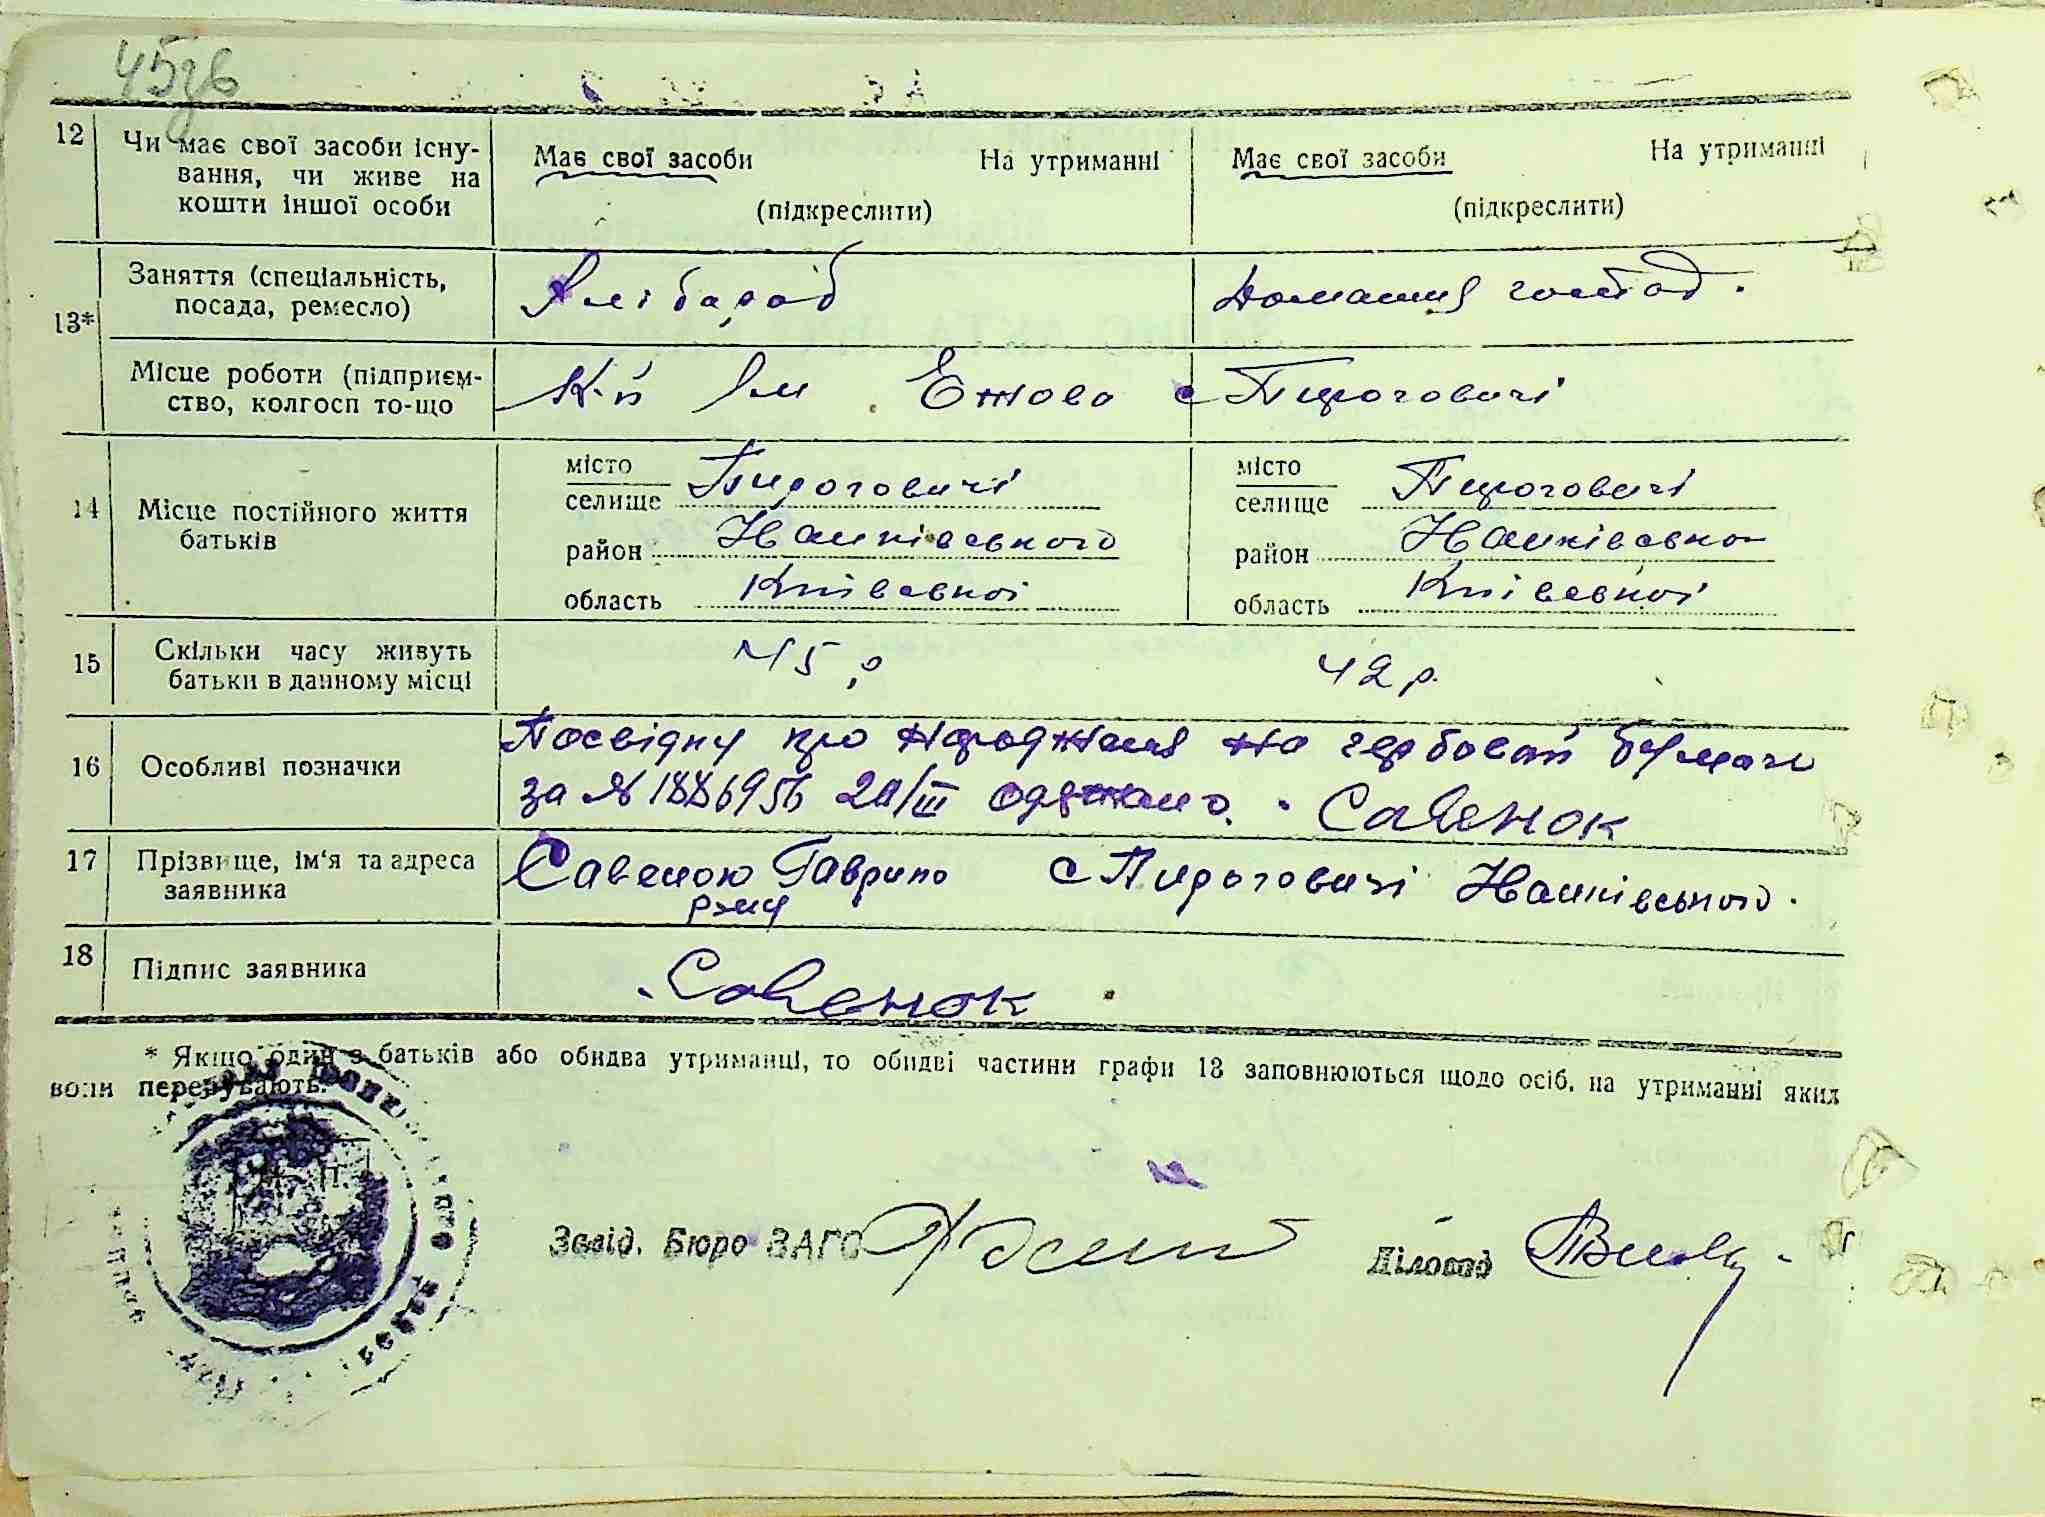 45зв
12 Чи має свої засоби існу- Має свої засоби На утриманні Має свої засоби На утриманні
вання, чи живе на
кошти іншої особи (підкреслити) (підкреслити)
13* Заняття (спеціальність, Хлібароб Домашня господ.
посада, ремесло)
Місце роботи (підприєм- К-п Ім Ежова с Пироговичі
ство, колгосп то-що
14 Місце постійного життя батьків
місто Пироговичі місто Пироговичі
селище селище
район Іванківського район Іванківсько
область Київської область Київської
15 Скільки часу живуть 45 р 42 р.
батьки в данному місці
16 Особливі позначки Посвідку про народження на гербовой бумаги
за № 1886956 одержано. Савенок
17 Прізвище, ім'я та адреса Савеною Гаврило с Пироговичі Іванківського.
заявника
18 Підпис заявника Савенок
* Якщо один з батьків або обидва утриманці, то обидві частини графи 13 заповнюються щодо осіб, на утриманні яких
вони перебувають.
М. П.
Завід. Бюро ЗАГС Діловод